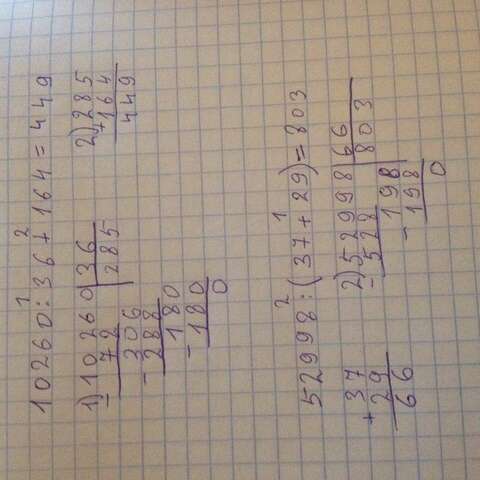 1 2
10260:36+164=449
1) 10260 | 36
- 72 | 285
306
- 288
180
- 180
0
2) 285
+ 164
449
2 1
52998:(37+29)=803
37
+ 29
66
2) 52998 | 66
- 528 | 803
198
- 198
0